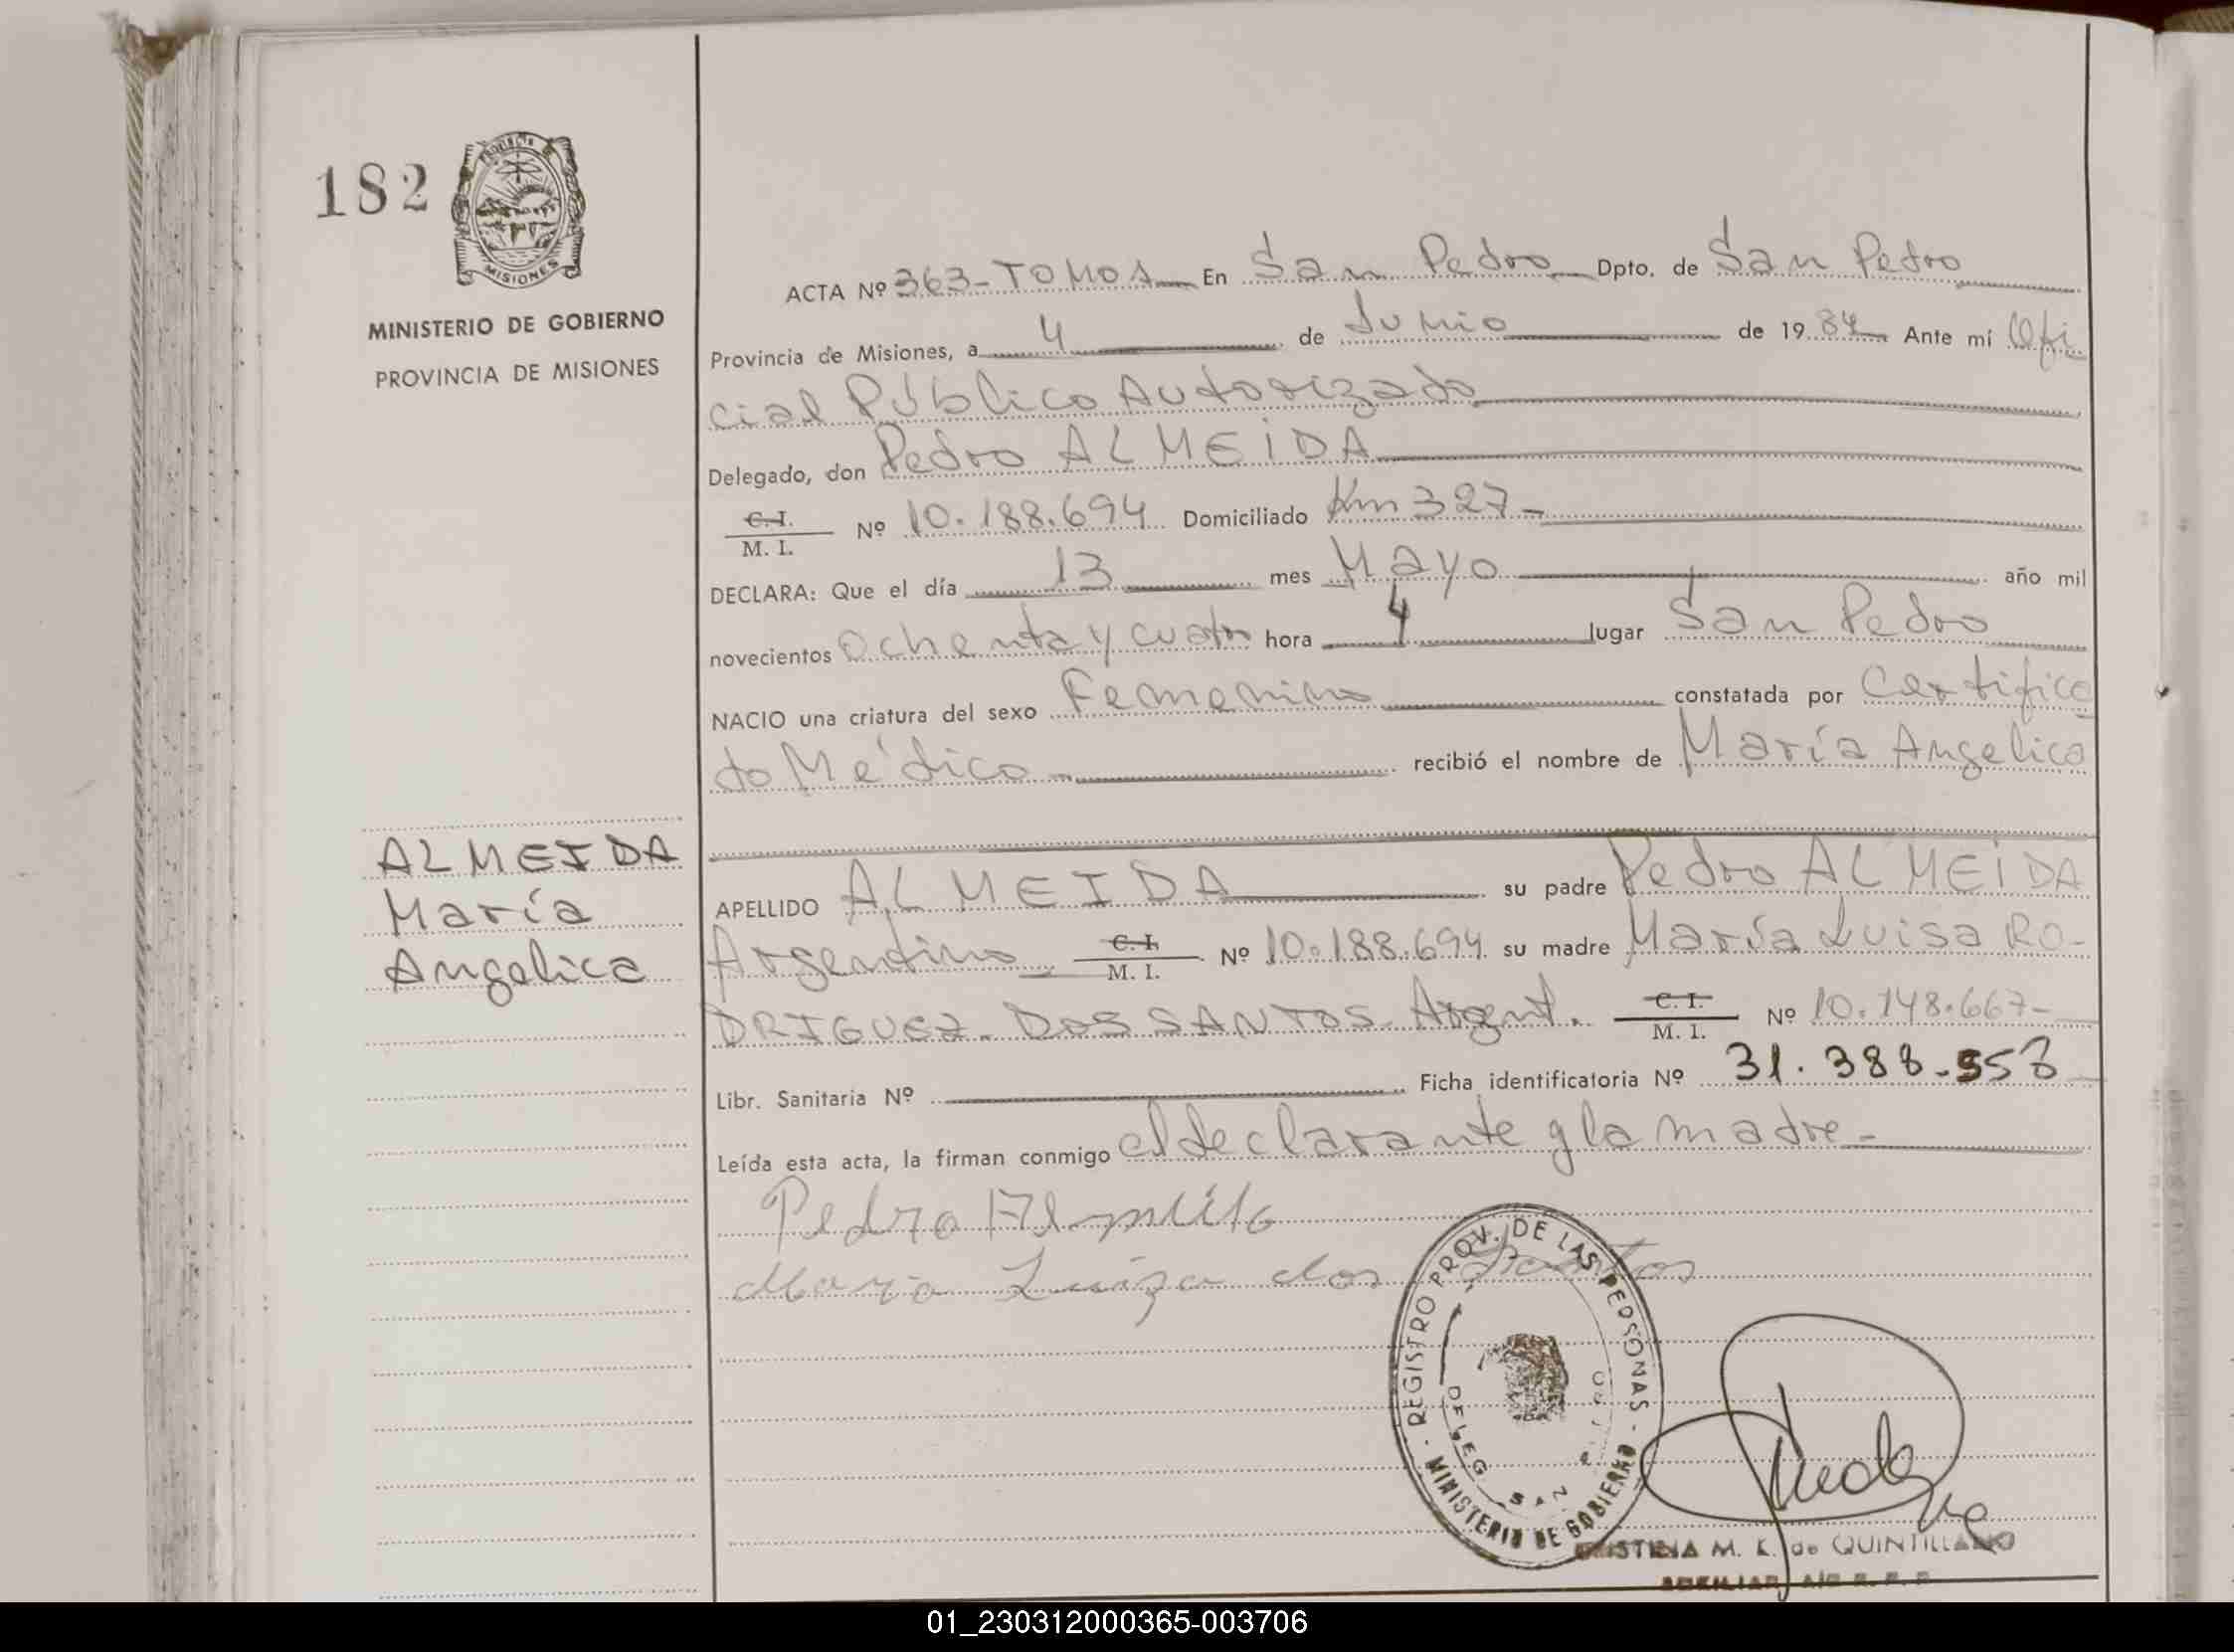 182
PROVINCIA DE
MISIONES
MINISTERIO DE GOBIERNO
PROVINCIA DE MISIONES
ALMEIDA
María
Angelica
ACTA Nº 363-TOMO 1 En San Pedro Dpto. de San Pedro
Provincia de Misiones, a 4 de Junio de 1984 Ante mí Ofi
cial Público Autorizado
Delegado, don Pedro ALMEIDA
C.I. / M. I. Nº 10.188.694 Domiciliado Km 327-
DECLARA: Que el día 13 mes Mayo año mil
novecientos ochenta y cuatro hora 4 lugar San Pedro
NACIO una criatura del sexo Femenino constatada por Certifica
do Médico recibió el nombre de María Angelica
APELLIDO ALMEIDA su padre Pedro ALMEIDA
Argentino C.I. / M. I. Nº 10.188.694 su madre María Luisa RO-
DRIGUEZ DOS SANTOS Argent. C.I. / M. I. Nº 10.148.667-
Libr. Sanitaria Nº Ficha identificatoria Nº 31.388.553
Leída esta acta, la firman conmigo el declarante y la madre-
Pedro
Maria Luiza dos Santos
REGISTRO PROV. DE LAS PERSONAS - MINISTERIO DE GOBIERNO
DELEG. SAN
M. K. de QUINTILLANO
01_230312000365-003706